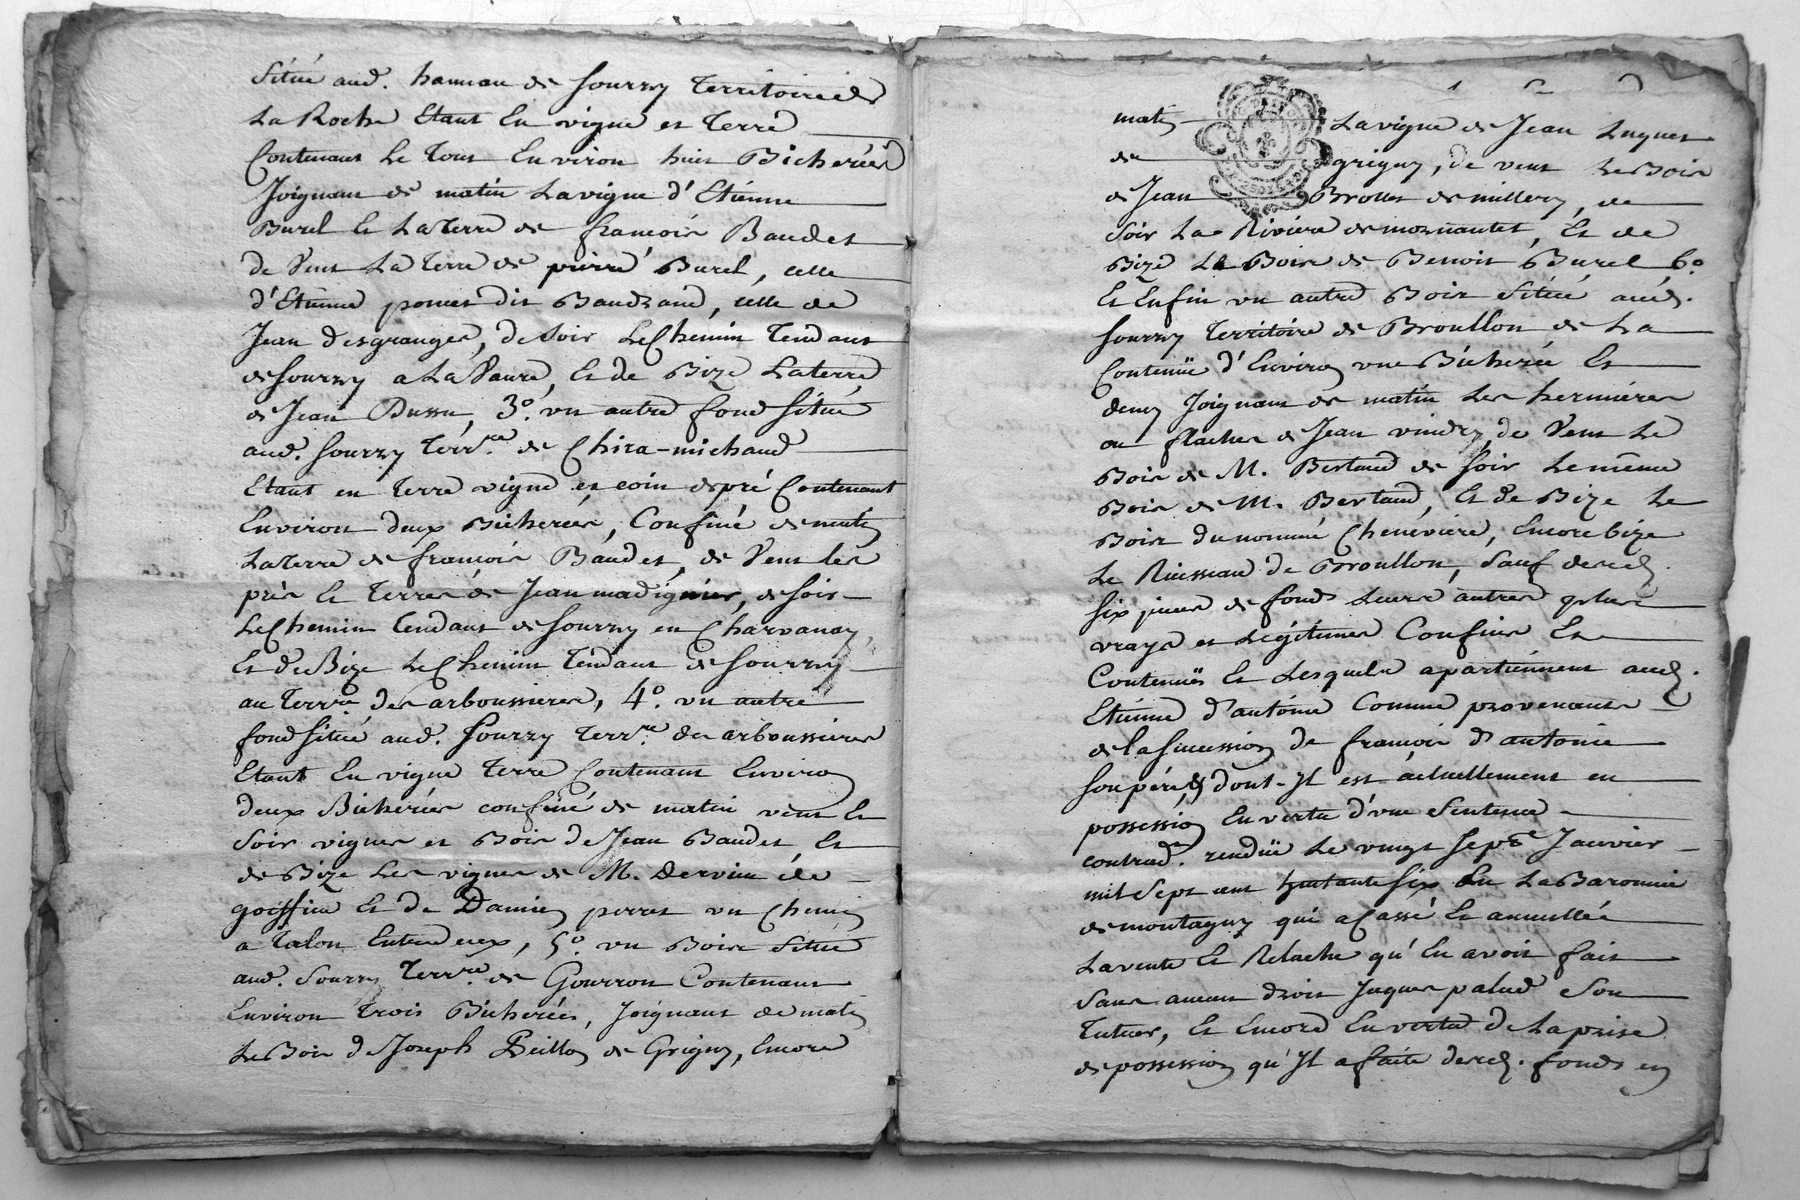 Situé aud. hameau de Sourzy Territoire de
La Roche Etant En vigne et Terre
Contenant Le Tout Environ huit Bicherées
Joignant de matin La vigne d'Etienne
Burel Et La Terre de francois Baudet
de Vent La Terre de pierre Burel, celle
d'Etienne poncet dit Baudrand, celle de
Jean desgranges, de Soir Le Chemin Tendant
de Sourzy a La Vaure, Et de Bize La terre
de Jean Dussu, 3.° un autre fond Situé
aud. Sourzy Terr.re de Chira-michaud
Etant en Terre vigne et coin de pré Contenant
Environ deux Bicherées, Confiné de matin
La terre de francois Baudet, de Vent les
prés Et Terres de Jean madignier, de soir
Le Chemin Tendant de Sourzy en Charvanay,
Et de Bize Le Chemin Tendant de Sourzy
au Terr.re des arboussieres, 4.° un autre
fond Situé aud. Sourzy Terr.re des arboussieres
Etant En vigne Terre Contenant Environ
deux Bicherées confiné de matin vent Et
Soir vignes et Bois de Jean Baudet, Et
de Bize Les vignes de M. Dervieu de
goiffieu Et de Damien perret un Chemin
a Talon Entre deux, 5.° un Bois Situé
aud. Sourzy Terr.re de Gourron Contenant
Environ Trois Bicherées, Joignant de matin
Le Bois de Joseph Peillon de Grigny, Encore
matin La vigne de Jean Luquet
de grigny, de vent Le Bois
de Jean Brottet de millery, de
Soir La Rivière de mornantet, Et de
Bize Le Bois de Benoit Burel 6.°
Et Enfin un autre Bois Situé aud.
Sourzy Territoire de Broullon de La
Contenüe d'Environ une Bicherée Et
demy Joignant de matin Les hermières
ou flaches de Jean vindry, de Vent Le
Bois de M. Bertaud de Soir Le même
Bois de M. Bertaud, Et de Bize Le
Bois du nommé Chenévière, Encore bize
Le Ruisseau de Broullon, Sauf desd.
Six pieces de fonds Leurs autres plus
vrays et Légitimes Confins Et
Contenües Et Lesquels apartiennent aud.
Etienne d'antoine Comme provenants
de la Sucession de francois d'antoine
Son père & dont Jl est actuellement en
possession En vertu d'une Sentence
contrad.re rendüe Le vingt Sept Janvier
mil Sept cent huitante Six En La Baronnie
de montagny qui a Cassé Et annullée
La vente Et Relache qu'En avoit fait
Sans aucun droit Jaques palud Son
Tuteur, Et Encore En vertu de La prise
de possession qu'Jl a faite desd. fonds en